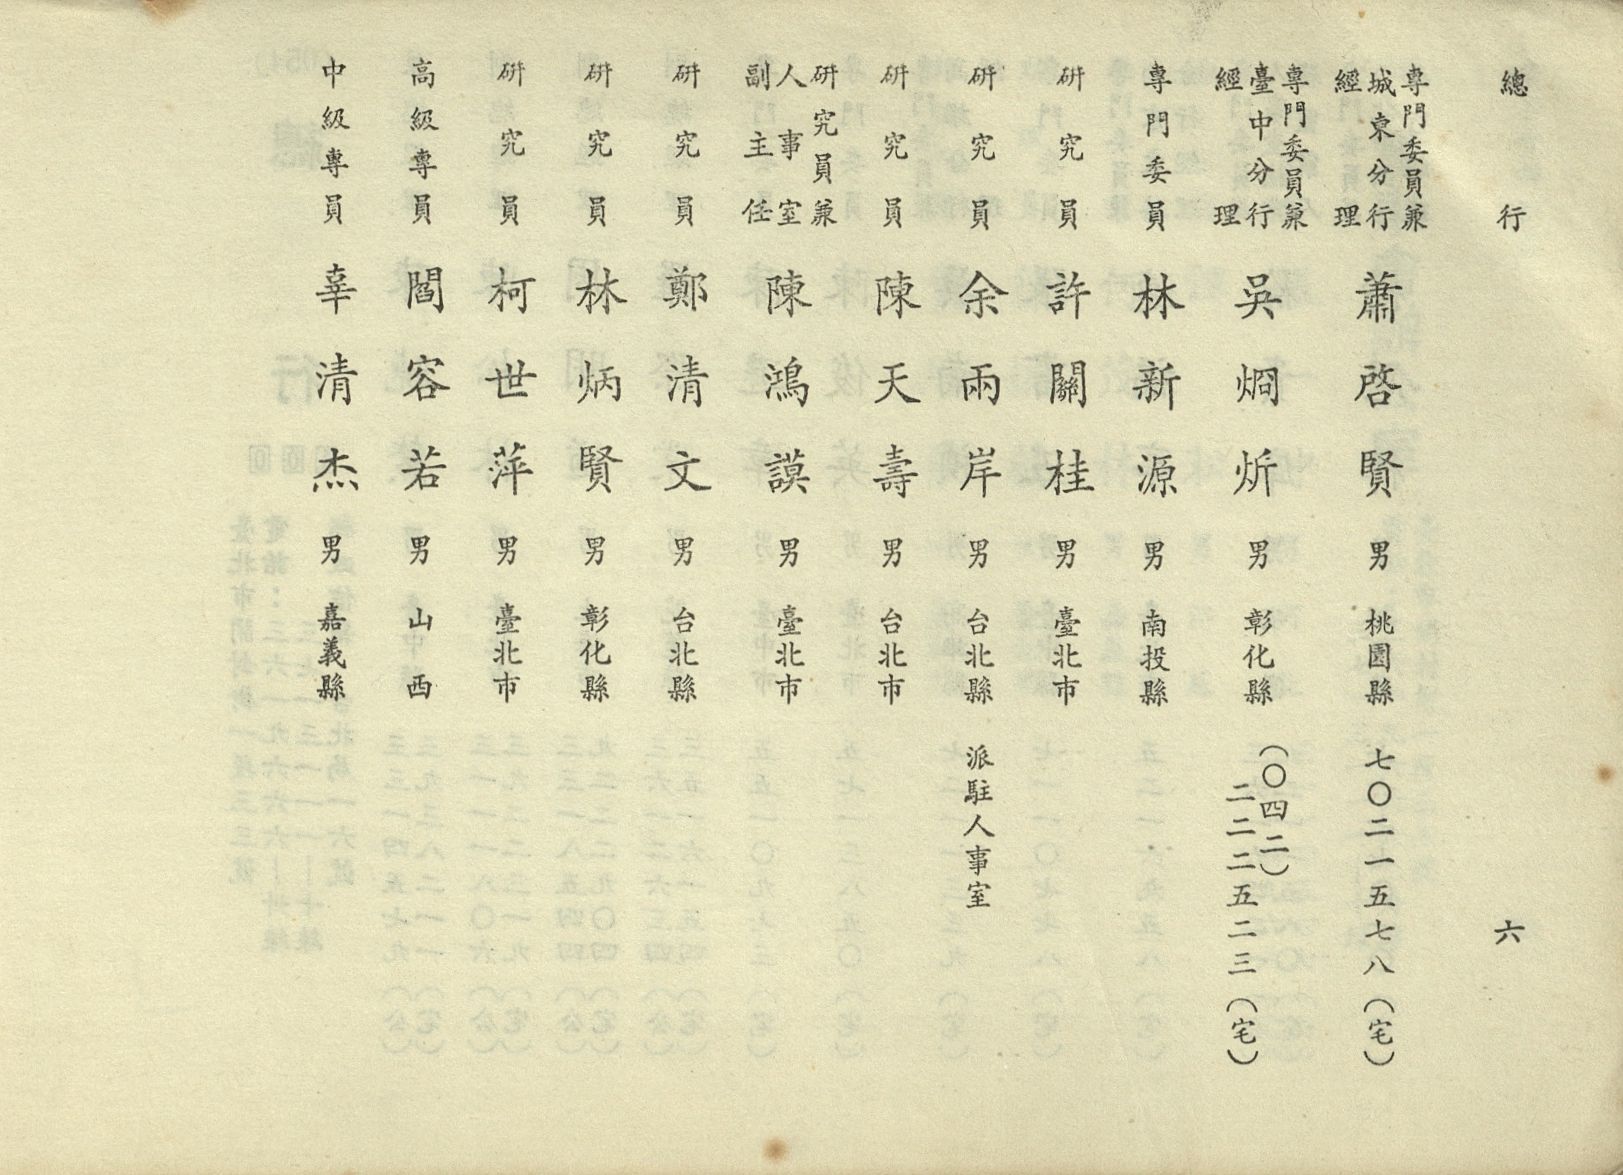 總行 六
專門委員兼城東分行經理 蕭啓賢 男 桃園縣 七〇二一五七八(宅)
專門委員兼臺中分行經理 吳炯炘 男 彰化縣 (〇四二)二二二五二三(宅)
專門委員 林新源 男 南投縣
研究員 許關桂 男 臺北市
研究員 余兩岸 男 台北縣 派駐人事室
研究員 陳天壽 男 台北市
研究員兼人事室副主任 陳鴻謨 男 臺北市
研究員 鄭清文 男 台北縣
研究員 林炳賢 男 彰化縣
研究員 柯世萍 男 臺北市
高級專員 閻容若 男 山西
中級專員 辜清杰 男 嘉義縣